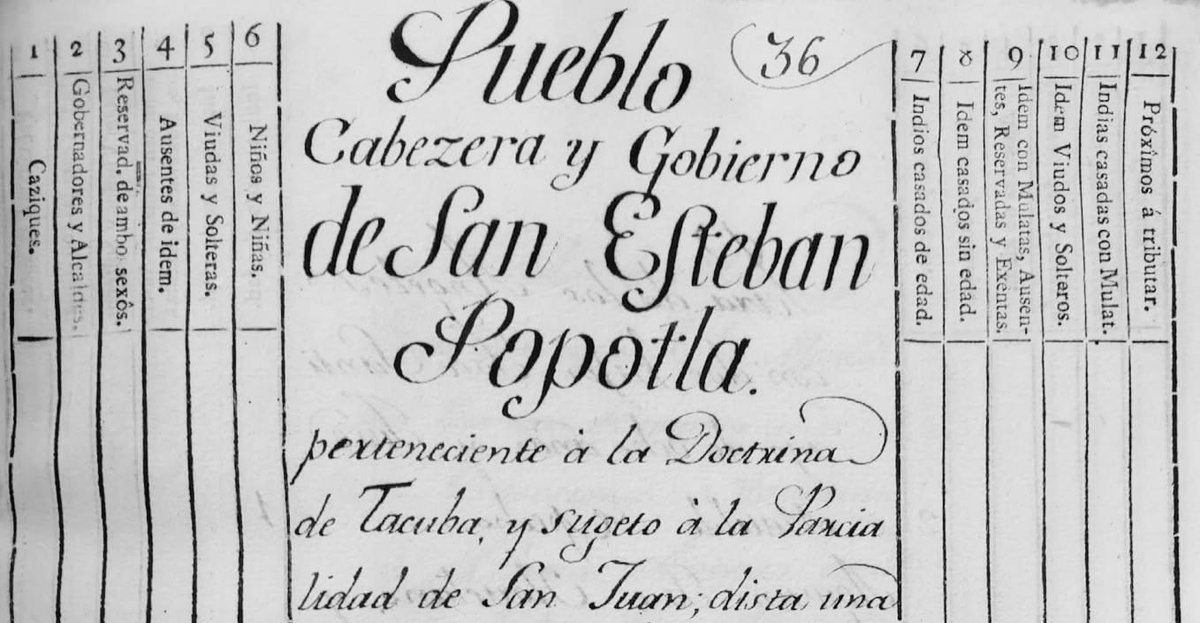 1
Caziques.
2
Gobernadores y Alcaldes.
3
Reservad. de ambo. sexôs.
4
Ausentes de idem.
5
Viudas y Solteras.
6
Niños y Niñas.
36
Pueblo
Cabezera y Gobierno
de San Esteban
Popotla.
perteneciente à la Doctrina
de Tacuba, y sugeto à la Parcia
lidad de San Juan; dista una
7
Indios casados de edad.
8
Idem casados sin edad.
9
Idem con Mulatas, Ausen-
tes, Reservadas y Exêntas.
10
Idem Viudos y Solteros.
11
Indias casadas con Mulat.
12
Próxîmos á tributar.